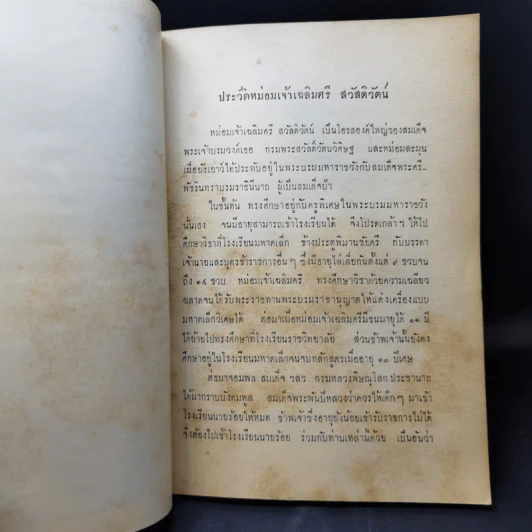 ประวัติหม่อมเจ้าเฉลิมศรี สวัสดิวัตน์
หม่อมเจ้าเฉลิมศรี สวัสดิวัตน์ เป็นโอรสองค์ใหญ่ของสมเด็จ
พระเจ้าบรมวงศ์เธอ กรมพระสวัสดิ์วัตนวิศิษฐ และหม่อมละมุน
เมื่อยังเยาว์ได้ประทับอยู่ในพระบรมมหาราชวังกับสมเด็จพระศรี-
พัชรินทราบรมราชินีนาถ ผู้เป็นสมเด็จป้า
ในชั้นต้น ทรงศึกษาอยู่กับครูพิเศษในพระบรมมหาราชวัง
นั้นเอง จนมีอายุสามารถเข้าโรงเรียนได้ จึงโปรดเกล้า ฯ ให้ไป
ศึกษาวิชาที่โรงเรียนมหาดเล็ก ข้างประตูพิมานชัยศรี กับบรรดา
เจ้านายและบุตรข้าราชการอื่น ๆ ซึ่งมีอายุไล่เลี่ยกันตั้งแต่ ๙ ขวบจน
ถึง ๑๔ ขวบ หม่อมเจ้าเฉลิมศรี ทรงศึกษาวิชาด้วยความเฉลียว
ฉลาดจนได้รับพระราชทานพระบรมราชานุญาตให้แต่งเครื่องแบบ
มหาดเล็กวิเศษได้ ต่อมาเมื่อหม่อมเจ้าเฉลิมศรีมีชนมายุได้ ๑๑ ปี
ได้ย้ายไปทรงศึกษาที่โรงเรียนราชวิทยาลัย ส่วนข้าพเจ้านั้นยังคง
ศึกษาอยู่ในโรงเรียนมหาดเล็กจนจบหลักสูตรเมื่ออายุ ๑๓ ปีเศษ
ต่อมาจอมพล สมเด็จ ฯลฯ กรมหลวงพิษณุโลกประชานาถ
ได้มากราบบังคมทูล สมเด็จพระพันปีหลวงว่าควรให้เด็ก ๆ มาเข้า
โรงเรียนนายร้อยให้หมด ข้าพเจ้าซึ่งอายุยังน้อยเข้ารับราชการไม่ได้
จึงต้องไปเข้าโรงเรียนนายร้อย ร่วมกับท่านเหล่านี้ด้วย เป็นอันว่า